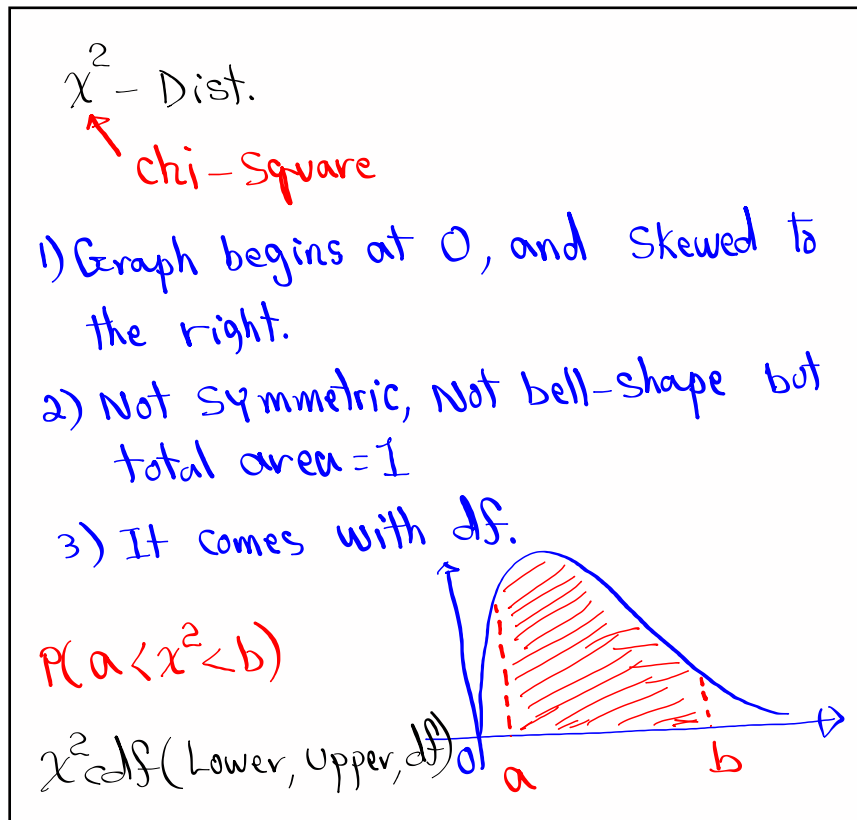 χ² - Dist.
chi-square
1) Graph begins at 0, and skewed to
the right.
2) Not symmetric, Not bell-shape but
total area = 1
3) It comes with df.
P(a < χ² < b)
χ²cdf(Lower, Upper, df)
0 a b